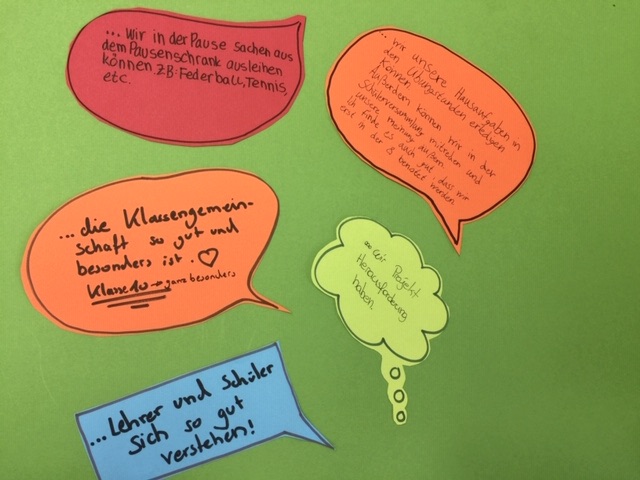 ... wir in der Pause sachen aus
dem Pausenschrank ausleihen
können z.B: Federball, Tennis,
etc.
... wir unsere Hausaufgaben in
den Übungsstunden erledigen
können
Außerdem können wir in der
Schülerversammlung mitreden und
unsere meinung äußern
Ich finde es auch gut, dass wir
erst in der 8 benotet werden
...die Klassengemein-
schaft so gut und
besonders ist. ♡
Klasse 10 → ganz besonders
... wir Projekt
Herausforderung
haben.
...Lehrer und Schüler
sich so gut
verstehen!